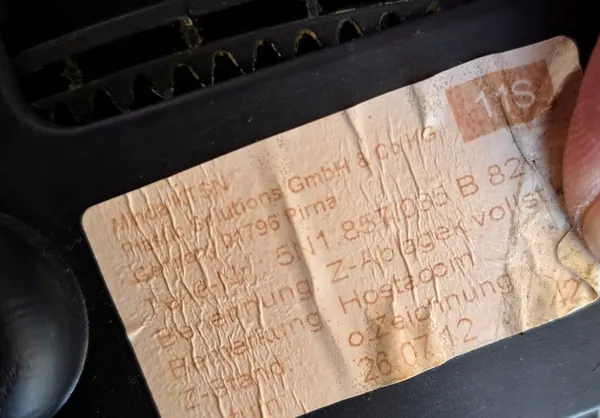 11S
Minda KTSN
Plastic Solutions GmbH & Co KG
01796 Pirna
5N1 857 035 B 82
Benennung Z-Ablagek vollst
Bemerkung Hostacom
Z-Stand o zeichnung
26 07 12